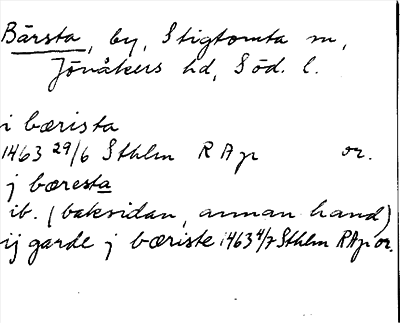 Bärsta, by, Stigtomta sn,
Jönåkers hd, Söd. l.
i bærista
1463 29/6 Sthlm R A p or.
j bæresta
ib. (baksidan, annan hand)
ij garde j bæriste 1463 4/7 Sthlm RAp or.